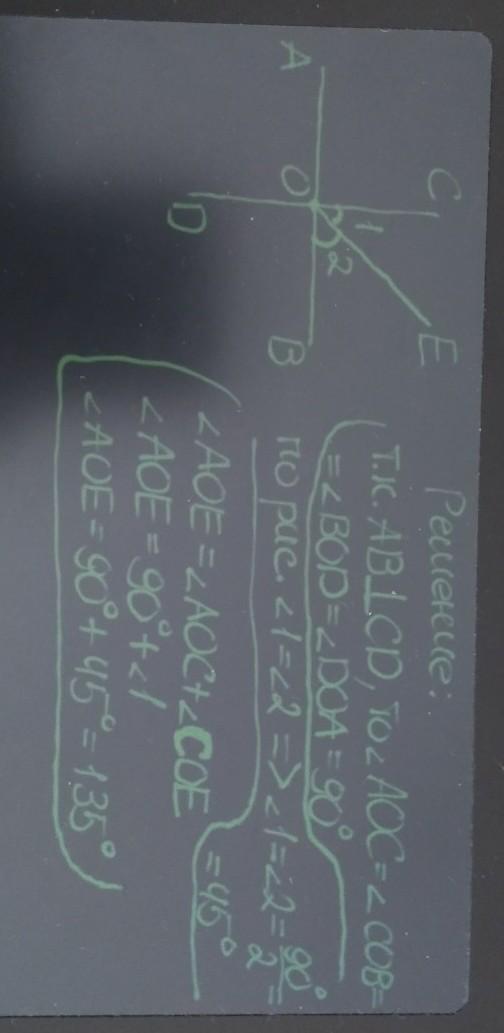 A
C
O
1
2
E
D
B
Решение:
т.к. AB⊥CD, то ∠AOC=∠COB=
=∠BOD=∠DOA=90°
по рис. ∠1=∠2 => ∠1=∠2=90°/2=
=45°
∠AOE=∠AOC+∠COE
∠AOE=90°+∠1
∠AOE=90°+45°=135°